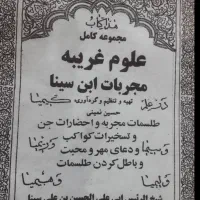 هذا کتاب
مجموعه کامل
علوم غریبه
مجربات ابن سینا
تهیه و تنظیم و گردآوری:
کیمیا
حسین نمینی
طلسمات مجربه و احضارات جن
و تسخیرات کواکب
و سیمیا
و دعای مهر و محبت
و باطل کردن طلسمات
و لیمیا
و هیمیا
شیخ الرئیس ابی علی الحسین بن علی سینا